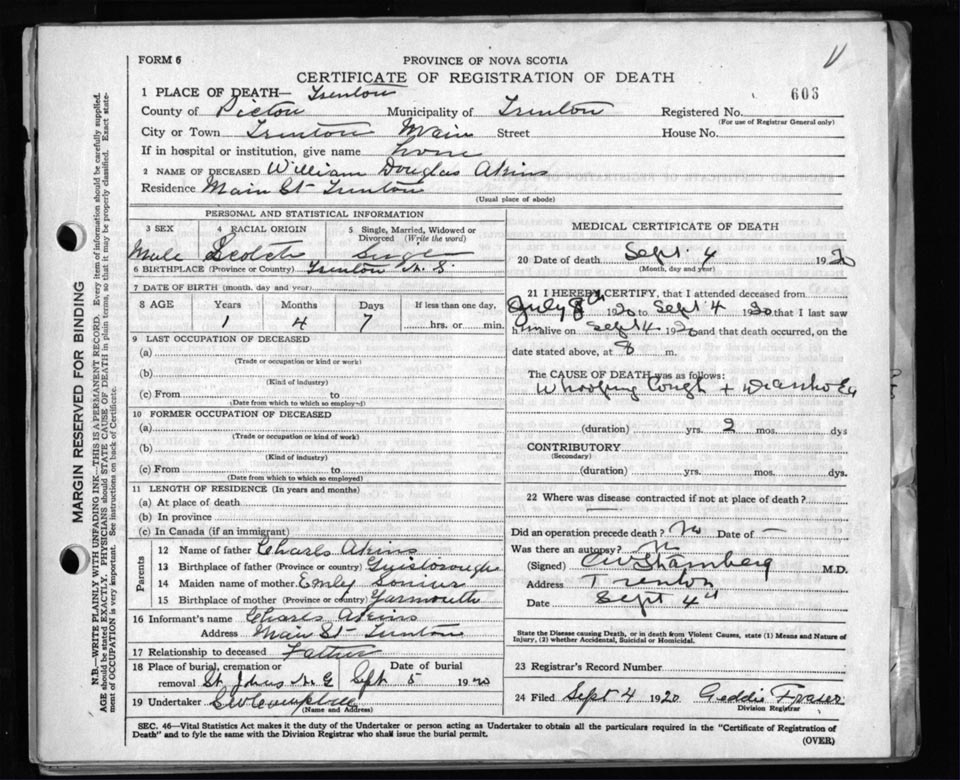 FORM 6
PROVINCE OF NOVA SCOTIA
CERTIFICATE OF REGISTRATION OF DEATH
603
1 PLACE OF DEATH— Trenton
County of Pictou Municipality of Trenton Registered No.
(For use of Registrar General only)
City or Town Trenton Main Street House No.
If in hospital or institution, give name home
2 NAME OF DECEASED William Douglas Akins
Residence Main St Trenton
(Usual place of abode)
PERSONAL AND STATISTICAL INFORMATION
3 SEX 4 RACIAL ORIGIN 5 Single, Married, Widowed or Divorced (Write the word)
Male Scotch Single
6 BIRTHPLACE (Province or Country) Trenton N.S.
7 DATE OF BIRTH (month, day and year)
8 AGE Years Months Days If less than one day,
1 4 7 hrs. or min.
9 LAST OCCUPATION OF DECEASED
(a)
(Trade or occupation or kind of work)
(b)
(Kind of industry)
(c) From to
(Date from which to which so employed)
10 FORMER OCCUPATION OF DECEASED
(a)
(Trade or occupation or kind of work)
(b)
(Kind of industry)
(c) From to
(Date from which to which so employed)
11 LENGTH OF RESIDENCE (In years and months)
(a) At place of death
(b) In province
(c) In Canada (if an immigrant)
Parents
12 Name of father Charls Akins
13 Birthplace of father (Province or country) Guysborough
14 Maiden name of mother Emly
15 Birthplace of mother (Province or country) Yarmouth
16 Informant's name Charls Akins
Address Main St Trenton
17 Relationship to deceased Father
18 Place of burial, cremation or removal St Johns Date of burial Sept 5 1920
19 Undertaker C W Campbell
(Name and Address)
MEDICAL CERTIFICATE OF DEATH
20 Date of death Sept. 4 1920
(Month, day and year)
21 I HEREBY CERTIFY, that I attended deceased from
July 8th 1920 to Sept 4 1920 that I last saw
him alive on Sept 4 1920 and that death occurred, on the
date stated above, at 8 m.
The CAUSE OF DEATH was as follows:
Whooping Cough + Diarrhoea
(duration) yrs. 2 mos. dys
CONTRIBUTORY
(Secondary)
(duration) yrs. mos. dys.
22 Where was disease contracted if not at place of death?
Did an operation precede death? No Date of —
Was there an autopsy? No
(Signed) M.D.
Address Trenton
Date Sept 4th
State the Disease causing Death, or in death from Violent Causes, state (1) Means and Nature of
Injury, (2) whether Accidental, Suicidal or Homicidal.
23 Registrar's Record Number
24 Filed Sept 4 1920 Geddie Fraser
Division Registrar
SEC. 46—Vital Statistics Act makes it the duty of the Undertaker or person acting as Undertaker to obtain all the particulars required in the "Certificate of Registration of
Death" and to fyle the same with the Division Registrar who shall issue the burial permit.
(OVER)
MARGIN RESERVED FOR BINDING
N.B.—WRITE PLAINLY WITH UNFADING INK—THIS IS A PERMANENT RECORD. Every item of information should be carefully supplied.
AGE should be stated EXACTLY. PHYSICIANS should STATE CAUSE OF DEATH in plain terms, so that it may be properly classified. Exact state-
ment of OCCUPATION is very important. See instructions on back of Certificate.